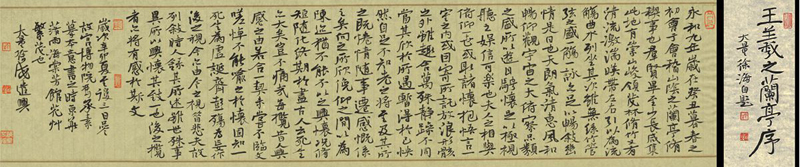 王羲之蘭亭序
永和九年歲在癸丑暮春之
初會于會稽山陰之蘭亭脩
禊事也羣賢畢至少長咸集
此地有崇山峻領茂林脩竹又有
清流激湍暎帶左右引以為流
觴曲水列坐其次雖無絲竹管
弦之盛一觴一詠亦足以暢敘幽
情是日也天朗氣清惠風和
暢仰觀宇宙之大俯察品類
之盛所以遊目騁懷足以極視
聽之娛信可樂也夫人之相與
俯仰一世或取諸懷抱悟言一
室之內或因寄所託放浪形骸
之外雖趣舍萬殊靜躁不同
當其欣於所遇暫得於己快
然自足不知老之將至及其所
之既惓情隨事遷感慨係
之矣向之所欣俛仰之閒以為
陳跡猶不能不以之興懷況脩
短隨化終期於盡古人云死生
亦大矣豈不痛哉每攬昔人興
感之由若合一契未嘗不臨文
嗟悼不能喻之於懷固知一
死生為虛誕齊彭殤為妄作
後之視今亦由今之視昔悲夫故
列敘時人錄其所述雖世殊事
異所以興懷其致一也後之攬
者亦將有感於斯文
故宮博物院承素
摹本